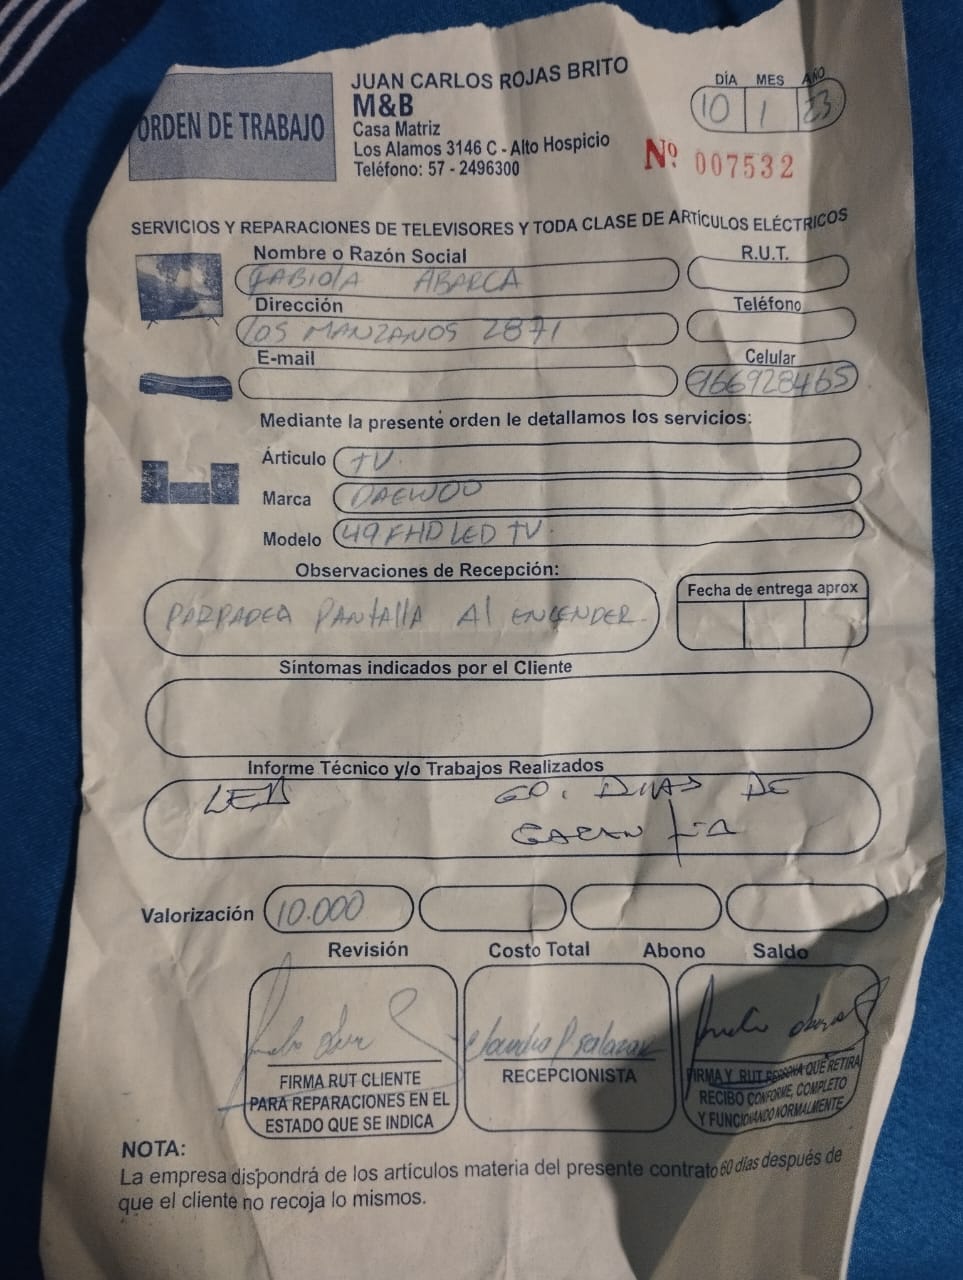 ORDEN DE TRABAJO
JUAN CARLOS ROJAS BRITO
M&B
Casa Matriz
Los Alamos 3146 C - Alto Hospicio
Teléfono: 57 - 2496300
DÍA MES AÑO
10 1 23
Nº 007532
SERVICIOS Y REPARACIONES DE TELEVISORES Y TODA CLASE DE ARTÍCULOS ELÉCTRICOS
Nombre o Razón Social R.U.T.
FABIOLA ABARCA
Dirección Teléfono
LOS MANZANOS 2871
E-mail Celular
966928465
Mediante la presente orden le detallamos los servicios:
Árticulo TV.
Marca DAEWOO
Modelo 49 FHD LED TV.
Observaciones de Recepción:
Fecha de entrega aprox
PARPADEA PANTALLA Al ENCENDER.
Síntomas indicados por el Cliente
Informe Técnico y/o Trabajos Realizados
LED 60. DIAS DE
GARANTIA
Valorización 10.000
Revisión Costo Total Abono Saldo
Claudia P Salazar
FIRMA RUT CLIENTE
PARA REPARACIONES EN EL
ESTADO QUE SE INDICA
RECEPCIONISTA
FIRMA Y RUT PERSONA QUE RETIRA
RECIBO CONFORME, COMPLETO
Y FUNCIONANDO NORMALMENTE
NOTA:
La empresa dispondrá de los artículos materia del presente contrato 60 días después de
que el cliente no recoja lo mismos.